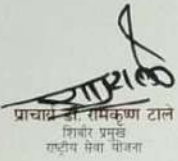 प्राचार्य डॉ. रामकृष्ण टाले
शिबीर प्रमुख
राष्ट्रीय सेवा योजना